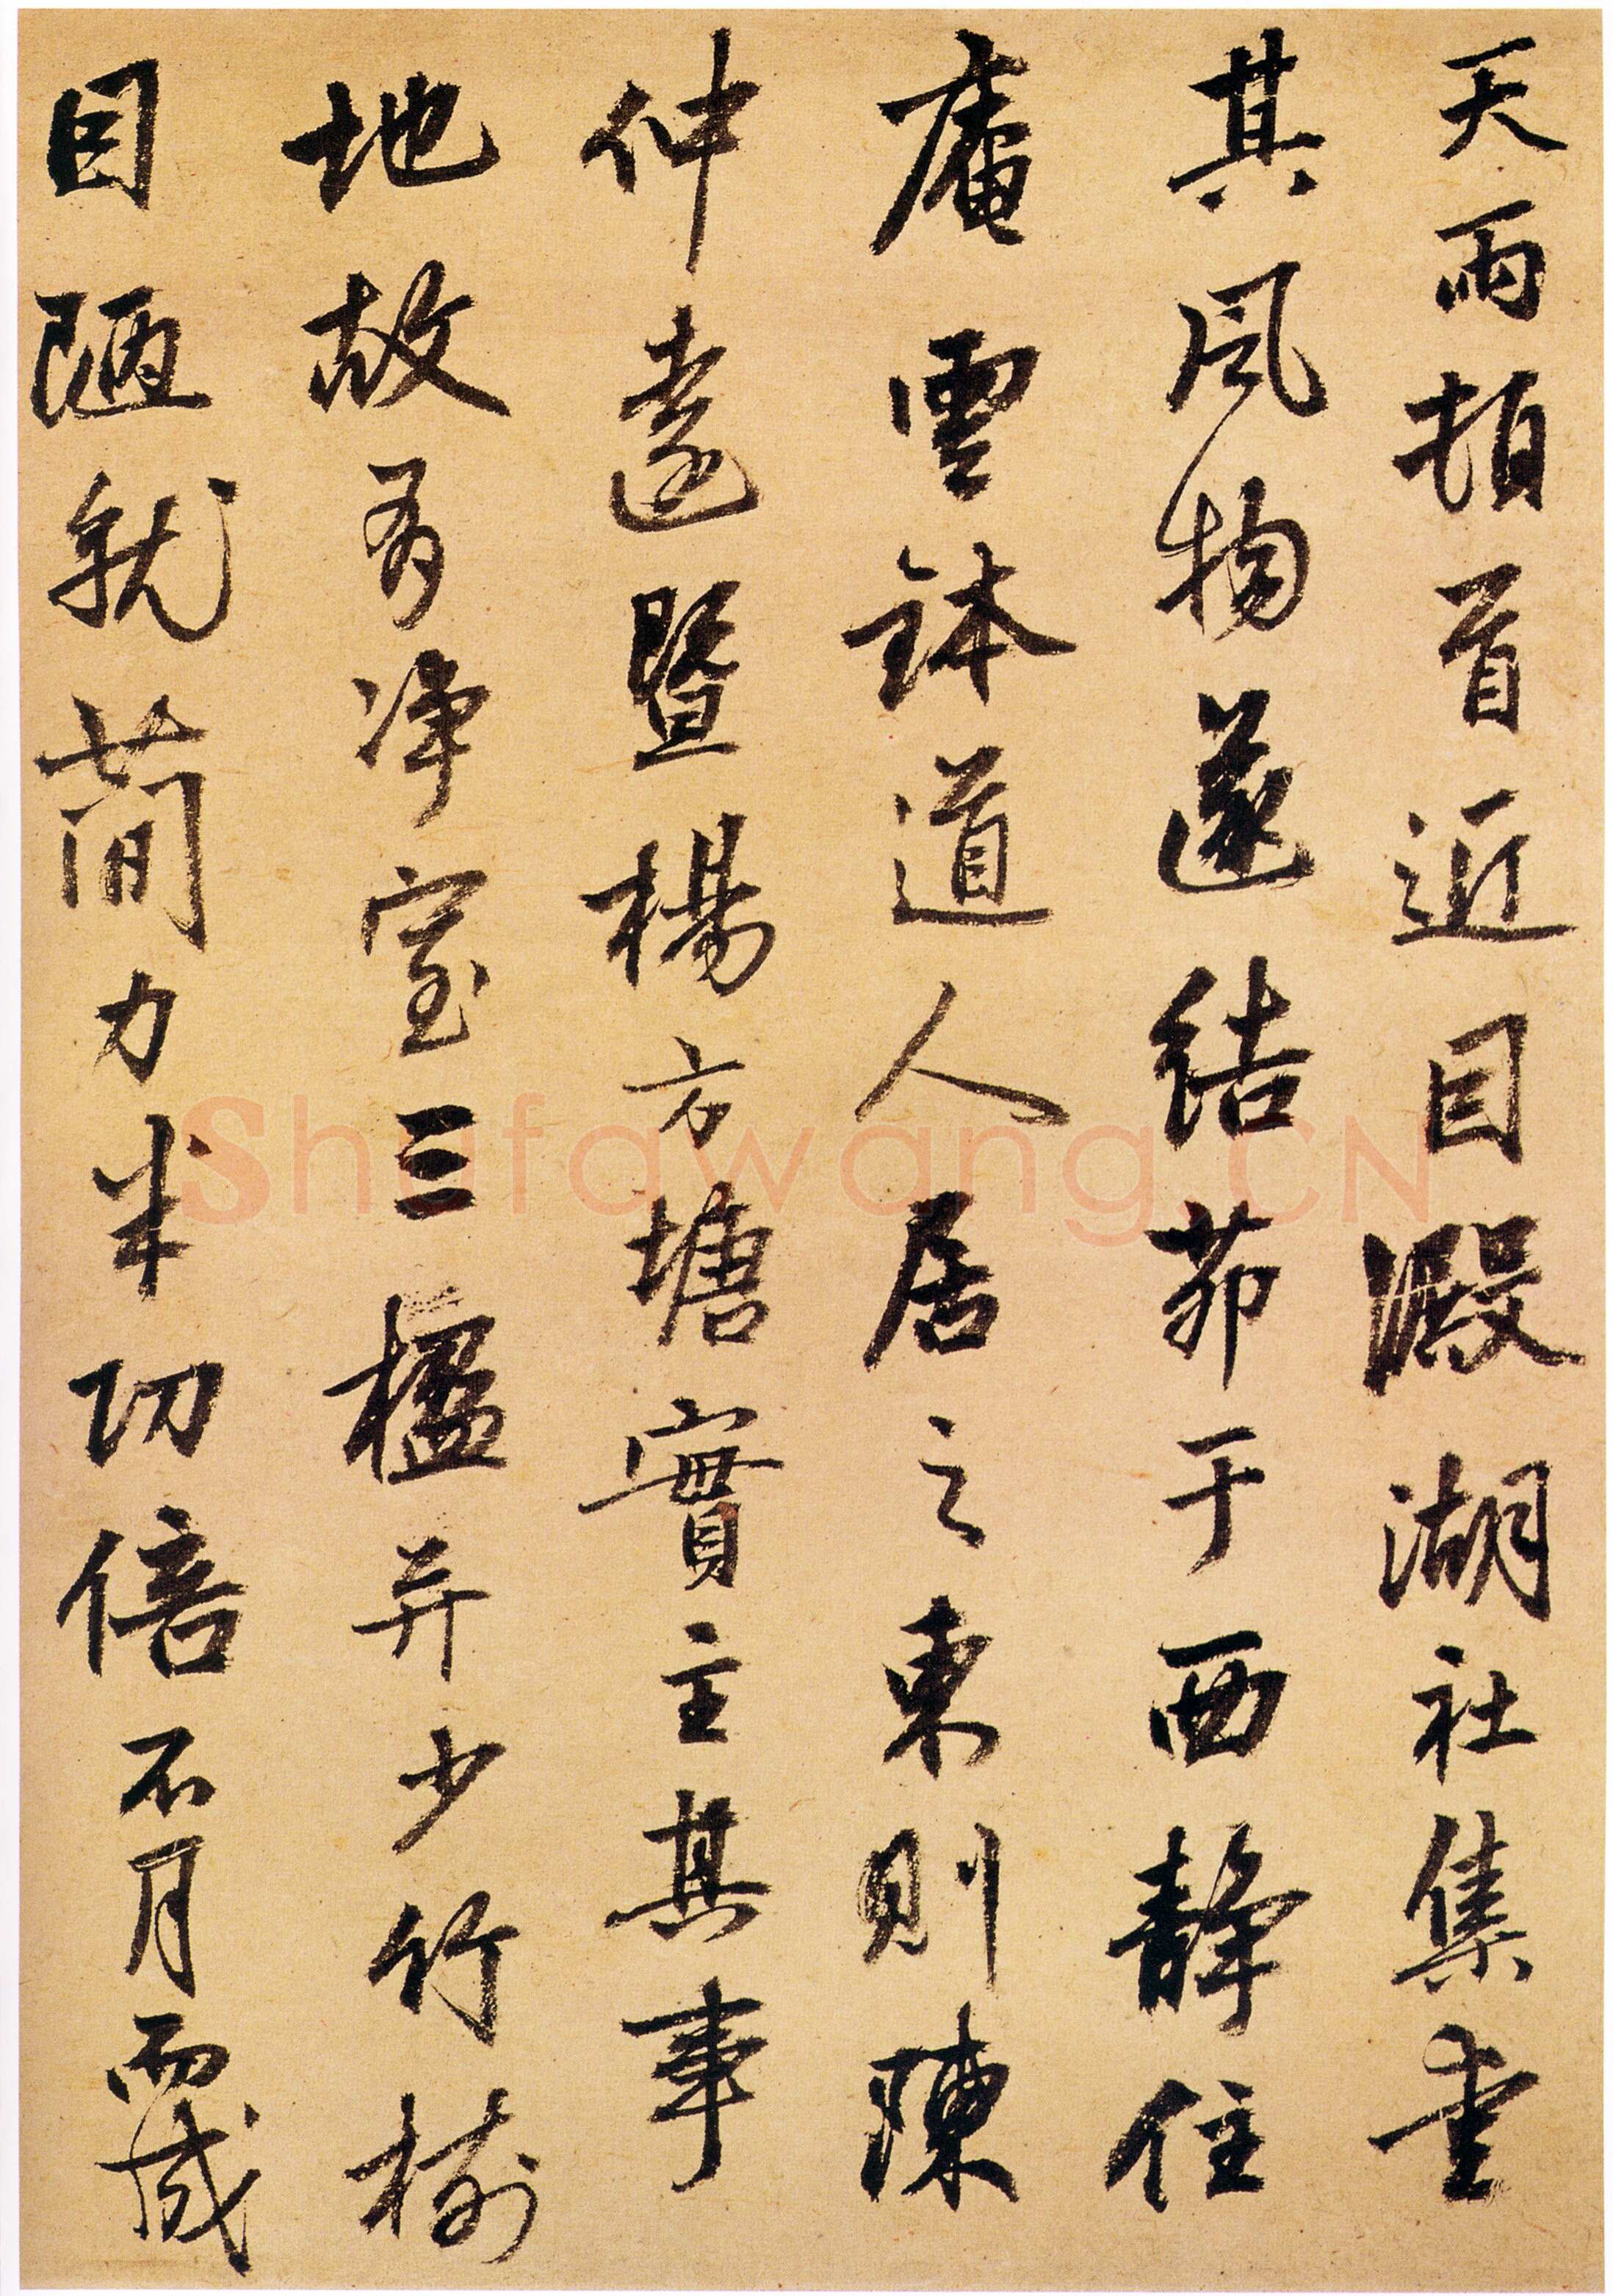 天雨頓首近囙澱湖社集重
其風物遂結茆于西靜住
庵雲鉢道人居之東則陳
仲遠暨楊方塘實主其事
地故有净室三楹并少竹樹
囙陋就蕑力半功倍不月而成
Shufawang.CN